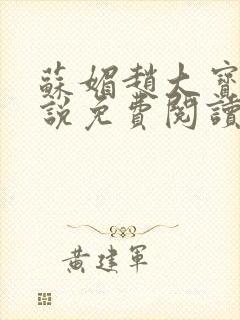 蘇媚趙大寶
說免費閱讀
黃建軍